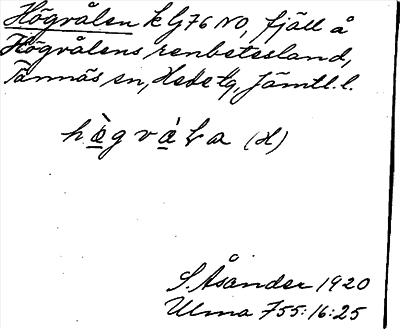 Högvålen k G76 NO, fjäll å
Högvålens renbetesland,
Tännäs sn, Hede tg, Jämtl. l.
hògvála (H)
S. Åsander 1920
Ulma 755:16:25